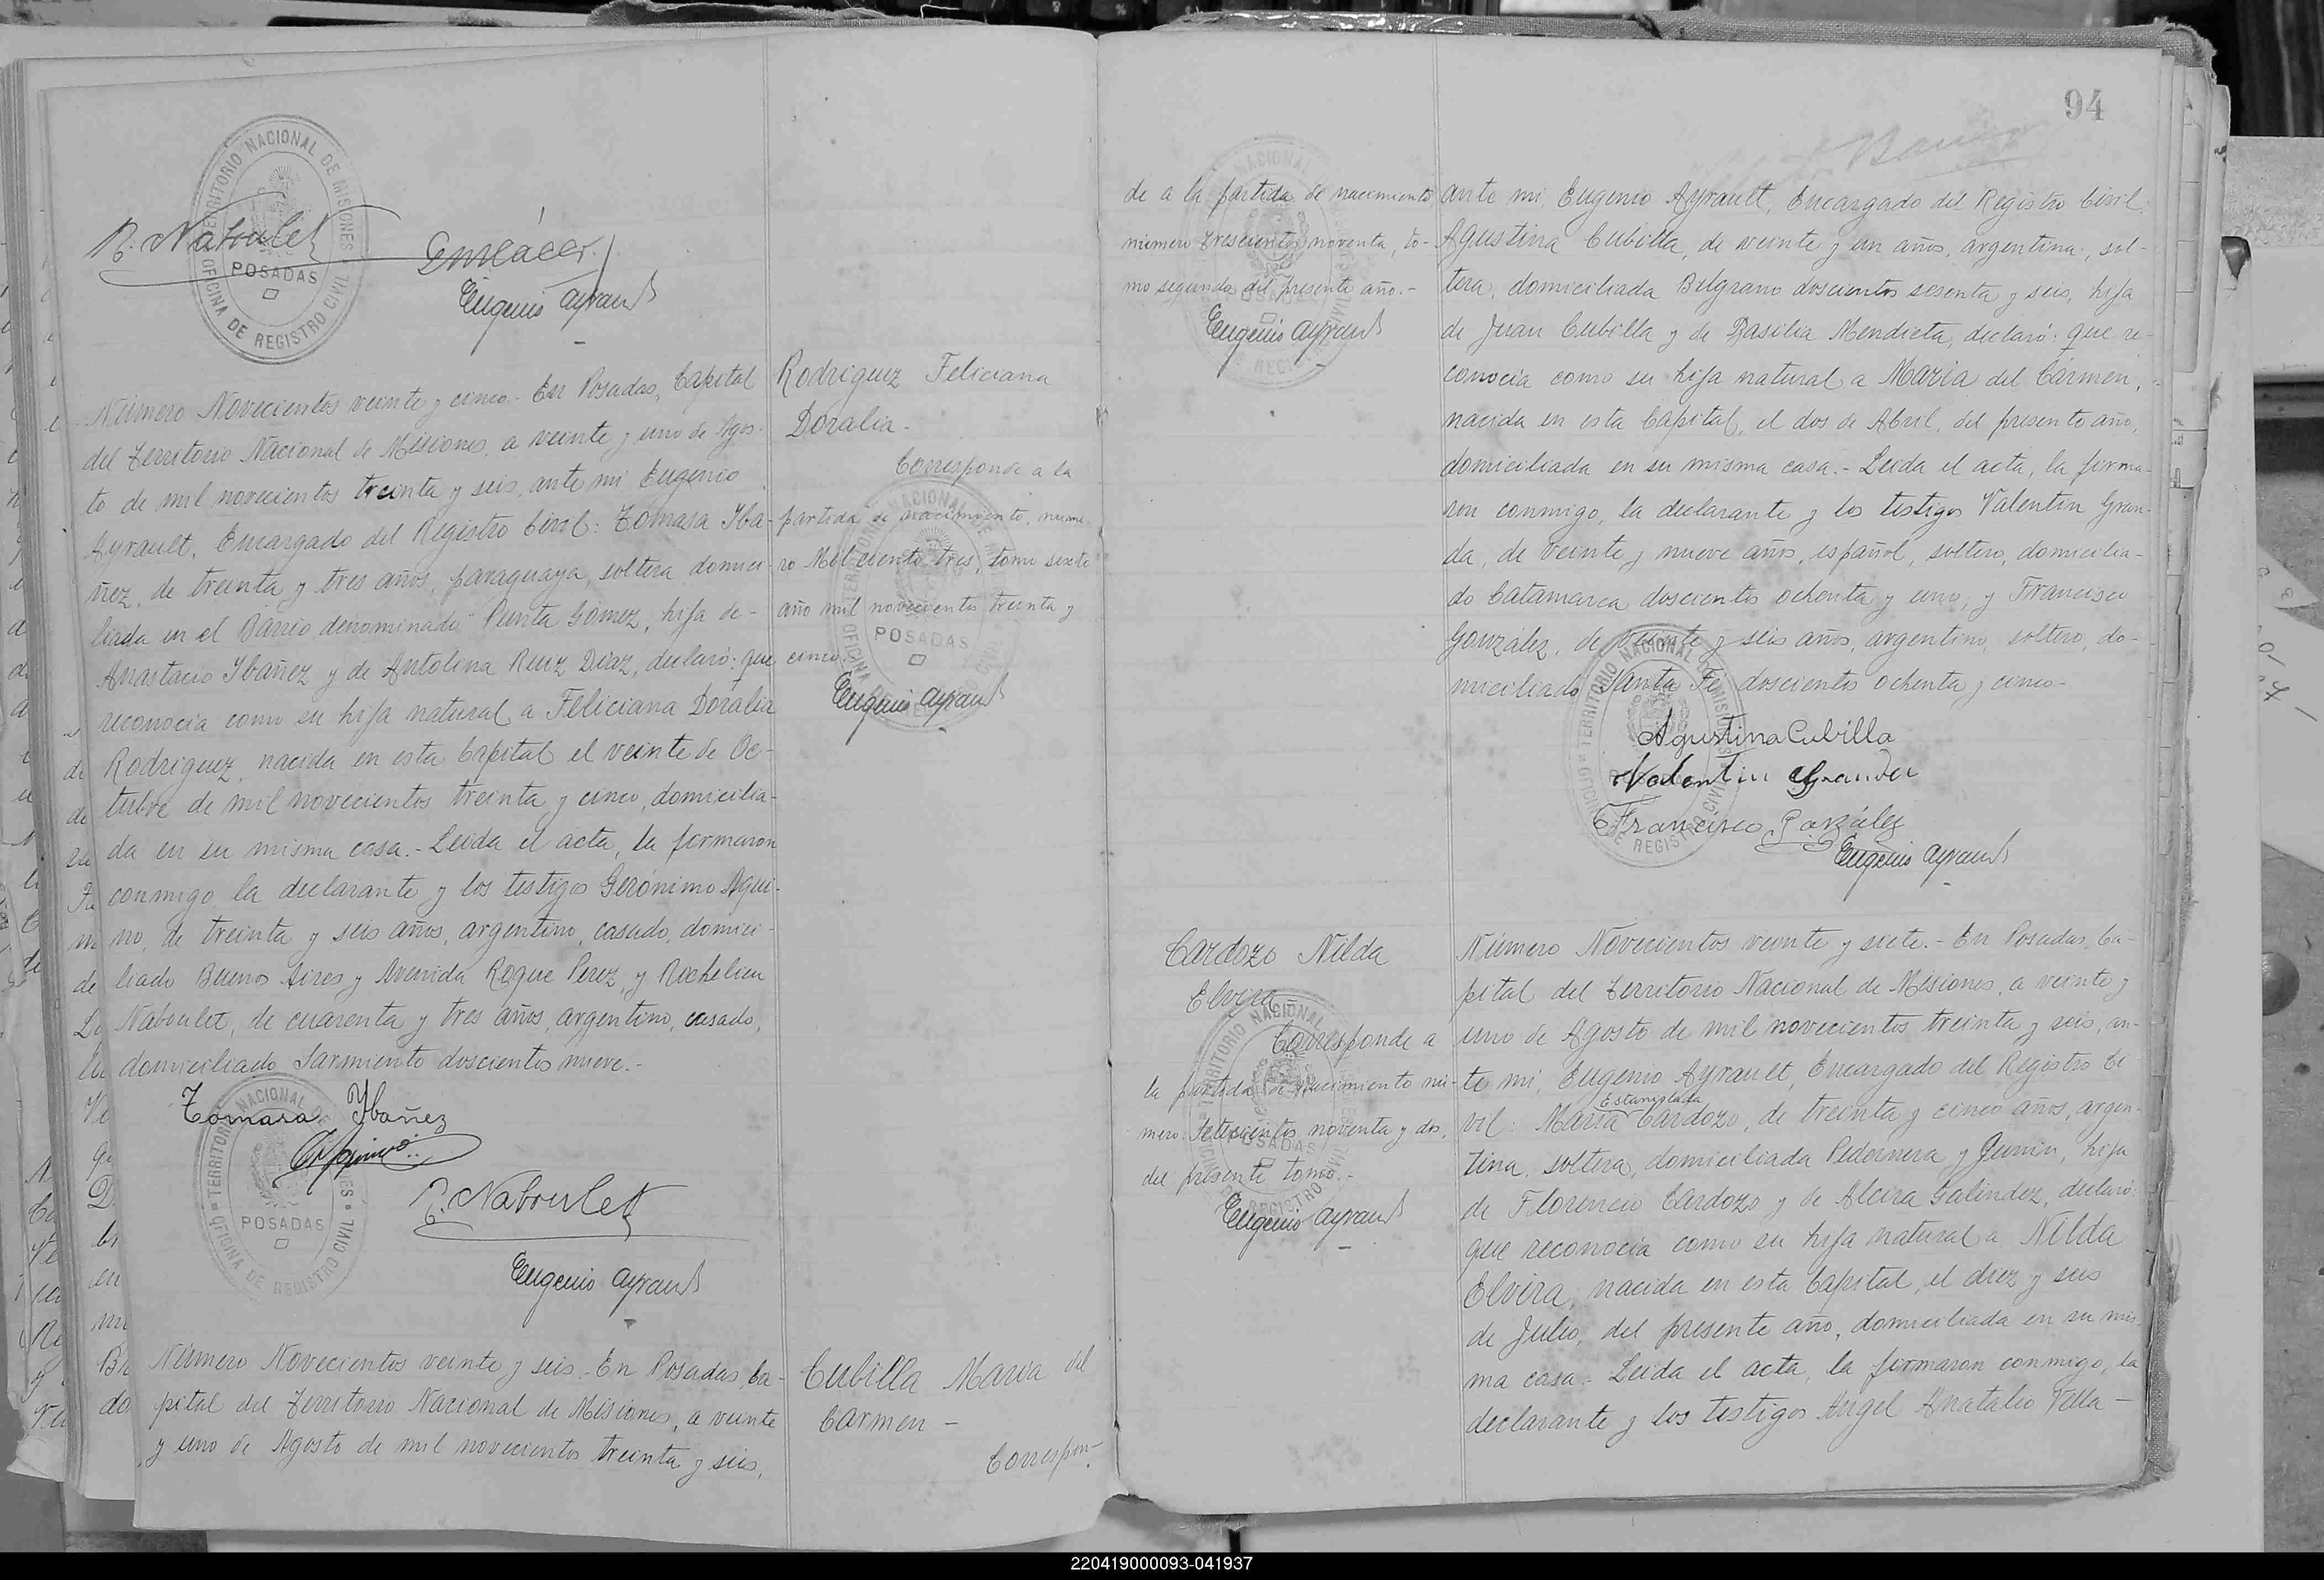 TERRITORIO NACIONAL DE MISIONES
OFICINA DE REGISTRO CIVIL
POSADAS
R. Naboulet
Eugenio Ayrault
Número Novecientos veinte y cinco.- En Posadas, Capital
del Territorio Nacional de Misiones, a veinte y uno de Agos-
to de mil novecientos treinta y seis, ante mi Eugenio
Ayrault, Encargado del Registro Civil: Tomasa Yba-
ñez, de treinta y tres años, paraguaya, soltera, domici-
liada en el Barrio denominado Punta Gomez, hija de-
Anastacio Ybañez y de Antolina Ruiz Diaz, declaró: que
reconocia como su hija natural a Feliciana Doralia
Rodriguez, nacida en esta Capital el veinte de Oc-
tubre de mil novecientos treinta y cinco, domicilia-
da en su misma casa.- Leida el acta, la firmaron
conmigo, la declarante y los testigos Gerónimo Aqui-
no, de treinta y seis años, argentino, casado, domici-
liado Buenos Aires y Avenida Roque Perez, y Rochelieu
Naboulet, de cuarenta y tres años, argentino, casado,
domiciliado Sarmiento doscientos nueve.-
Tomasa Ybañez
R. Naboulet
Eugenio Ayrault
TERRITORIO NACIONAL DE MISIONES
OFICINA DE REGISTRO CIVIL
POSADAS
Rodriguez Feliciana
Doralia-
Corresponde a la
partida de nacimiento, nume-
ro Mil ciento tres, tomo sexto
año mil novecientos treinta y
cinco.
Eugenio Ayrault
POSADAS
Número Novecientos veinte y seis.- En Posadas, Ca-
pital del Territorio Nacional de Misiones, a veinte
y uno de Agosto de mil novecientos treinta y seis,
Cubilla Maria del
Carmen-
Correspon-
94
de a la partida de nacimiento
número trescientos noventa, to-
mo segundo del presente año.-
Eugenio Ayrault
ante mi, Eugenio Ayrault, Encargado del Registro Civil
Agustina Cubilla, de veinte y un años, argentina, sol-
tera, domiciliada Belgrano doscientos sesenta y seis, hija
de Juan Cubilla y de Basilia Mendieta, declaró: que re-
conocia como su hija natural a Maria del Carmen,
nacida en esta Capital, el dos de Abril, del presente año,
domiciliada en su misma casa.- Leida el acta, la firma-
ron conmigo, la declarante y los testigos Valentin Gran-
da, de veinte y nueve años, español, soltero, domicilia-
do Catamarca doscientos ochenta y uno, y Francisco
González, de veinte y seis años, argentino, soltero, do-
miciliado Santa Fé doscientos ochenta y cinco-
Agustina Cubilla
Valentin Granda
Francisco González
Eugenio Ayrault
Cardozo Nilda
Elvira
Corresponde a
la partida de nacimiento nú-
mero Setecientos noventa y dos,
del presente tomo.-
Eugenio Ayrault
Número Novecientos veinte y siete.- En Posadas, Ca-
pital del Territorio Nacional de Misiones, a veinte y
uno de Agosto de mil novecientos treinta y seis, an-
te mi, Eugenio Ayrault, Encargado del Registro Ci-
Estanislada
vil: Maria Cardozo, de treinta y cinco años, argen-
tina, soltera, domiciliada Pedernera y Junin, hija
de Florencio Cardozo y de Alcira Galindez, declaró:
que reconocia como su hija natural a Nilda
Elvira, nacida en esta Capital, el diez y seis
de Julio, del presente año, domiciliada en su mis-
ma casa.- Leida el acta, la firmaron conmigo, la
declarante y los testigos Angel Anatalio Villa-
220419000093-041937